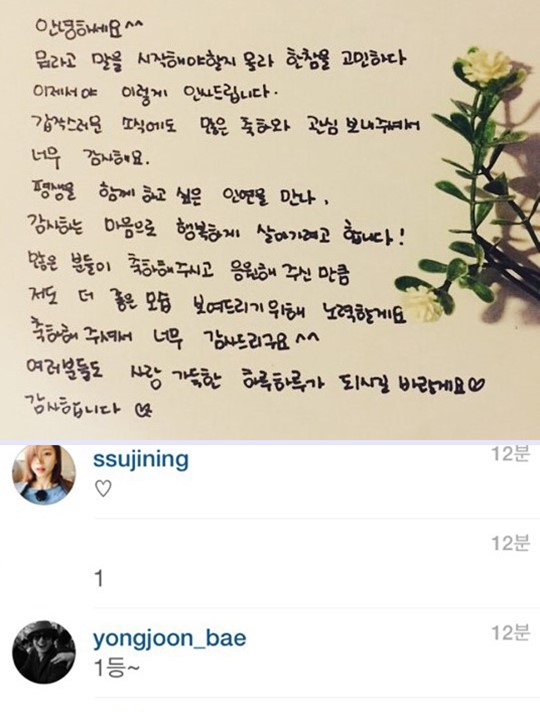 안녕하세요^^
뭐라고 말을 시작해야할지 몰라 한참을 고민하다
이제서야 이렇게 인사드립니다.
갑작스러운 소식에도 많은 축하와 관심 보내주셔서
너무 감사해요.
평생을 함께 하고 싶은 인연을 만나,
감사하는 마음으로 행복하게 살아가려고 합니다!
많은 분들이 축하해주시고 응원해 주신 만큼
저도 더 좋은 모습 보여드리기 위해 노력할게요
축하해 주셔서 너무 감사드리구요^^
여러분들도 사랑 가득한 하루하루가 되시길 바랄게요♡
감사합니다 ♡
ssujining 12분
♡
12분
1
yongjoon_bae 12분
1등~